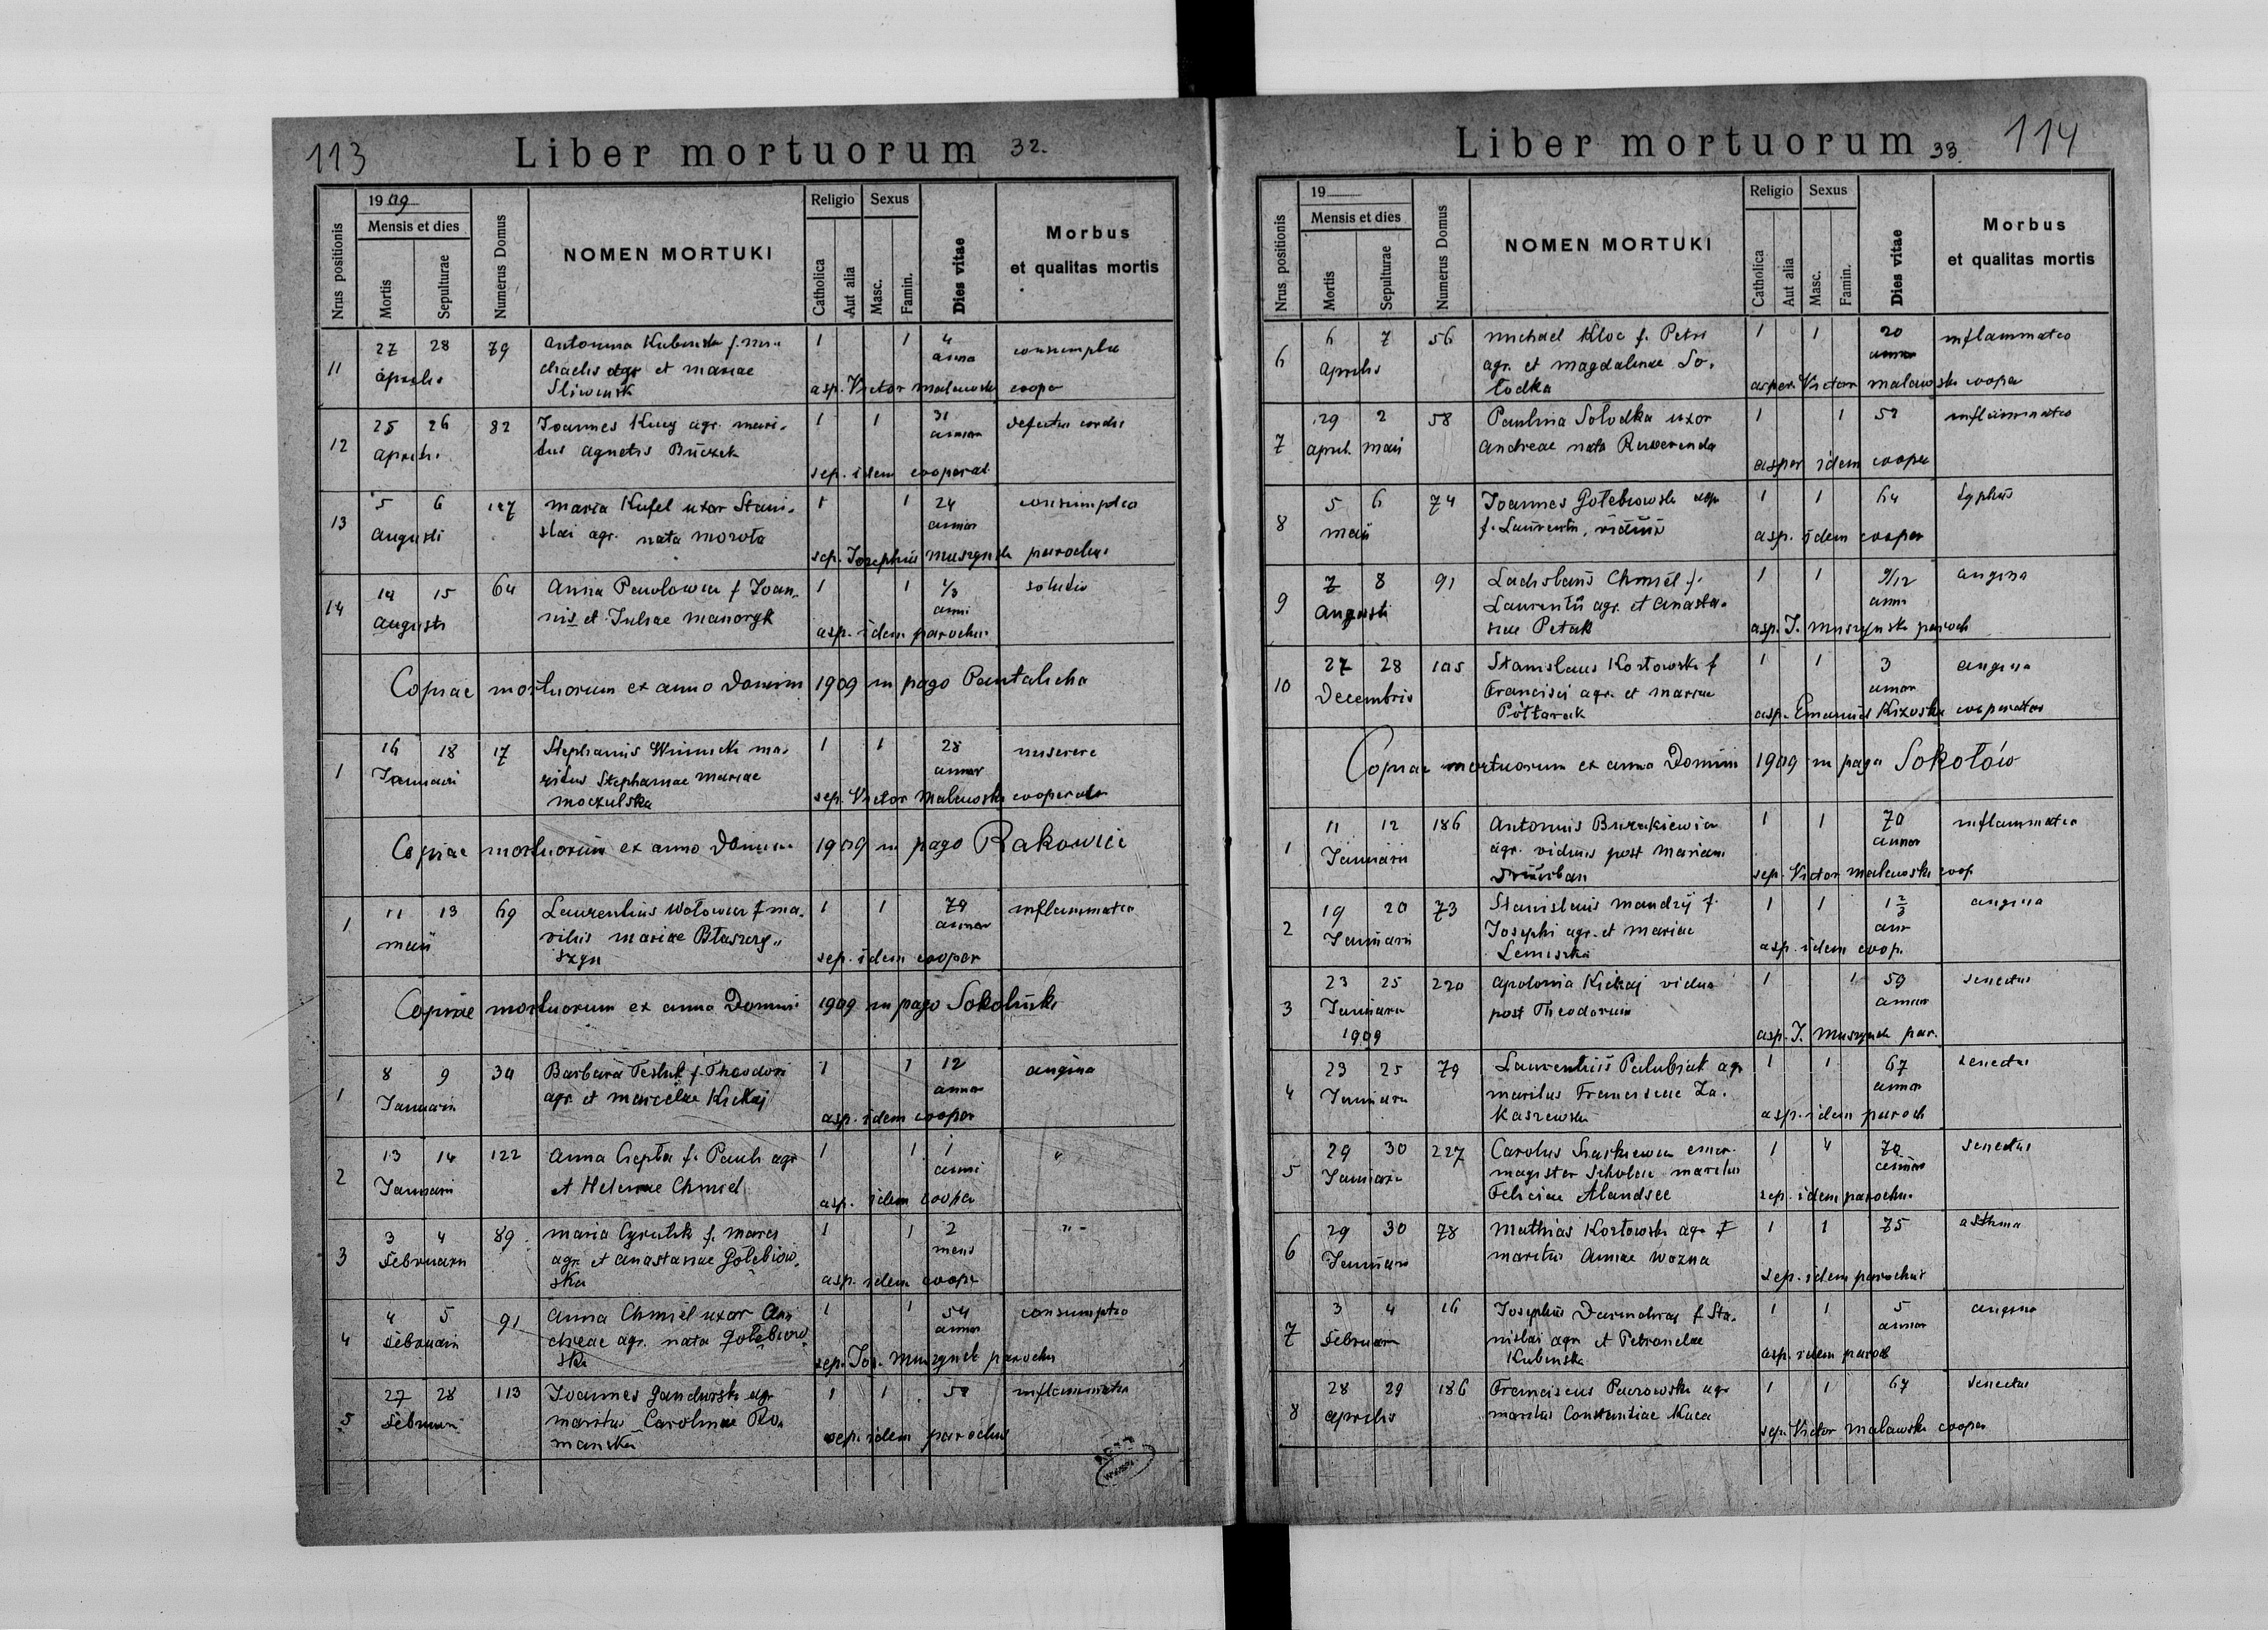 113
Liber mortuorum 32.
Nrus positionis
1909
Mensis et dies
Mortis
Sepulturae
Numerus Domus
NOMEN MORTUKI
Religio
Catholica
Aut alia
Sexus
Masc.
Famin.
Dies vitae
Morbus
et qualitas mortis
11 27 28 79 Antonina f. Mi- 1 1 4
Aprilis chaelis agr et Mariae anno
asp. Victor Malawski cooper
12 25 26 82 Joannes Kucy agr. mari- 1 1 31 defectus cordis
Aprilis tus Agnetis Buczek annor
sep. idem cooperat
13 5 6 127 Maria Kufel uxor Stani- 1 1 24 consumptio
Augusti slai agr. nata Morota annor
sep. Josephus Muszyński parochus
14 14 15 64 Anna f Joan- 1 1 1/3
Augusti nis et Juliae anni
asp. idem parochus
Copiae mortuorum ex anno Domini 1909 in pago Pantalicha
1 16 18 17 Stephanus Winnicki ma- 1 1 28 miserere
Januarii ritus Stephaniae Mariae annor
Moczulska sep. Victor Malawski cooperator
Copiae mortuorum ex anno Domini 1909 in pago Rakowiec
1 11 13 69 Laurentius f ma- 1 1 inflammatio
maii Mariae Błaszczy- annor
szyn sep. idem cooper
Copiae mortuorum ex anno Domini 1909 in pago Sokolniki
1 8 9 34 Barbara Tesluk f. Theodori 1 1 12 angina
Januarii agr et Marcelae Kickaj annor
asp. idem cooper
2 13 14 122 Anna Ciepła f. Pauli agr 1 1 1 "
Januarii et Helenae Chmiel anni
asp. idem cooper
3 3 4 89 Maria Cyrulik f. Marci 1 1 2 " -
Februarii agr. et Anastasiae Gołębiow- mens
ska asp. idem cooper
4 4 5 91 Anna Chmiel uxor An- 1 1 54 consumptio
Februarii dreae agr. nata Gołębiow- annor
ska sep. Jos. Muszyński parochus
5 27 28 113 Joannes agr 1 1 inflammatio
Februarii maritus Carolinae Ro-
mańska sep. idem parochus
Liber mortuorum 33. 114
Nrus positionis
19
Mensis et dies
Mortis
Sepulturae
Numerus Domus
NOMEN MORTUKI
Religio
Catholica
Aut alia
Sexus
Masc.
Famin.
Dies vitae
Morbus
et qualitas mortis
6 6 7 56 Michael Kloc f. Petri 1 1 20 inflammatio
Aprilis agr. et Magdalenae So- annor
łodka asper. Victor Malawski cooper
7 29 2 58 Paulina Solodka uxor 1 1 52 inflammatio
April. maii Andreae nata
asper idem cooper
8 5 6 74 Joannes Gołebiowski agr 1 1 64 typhus
maii f. Laurentii, viduus
asp. idem cooper
9 7 8 91 Ladislaus Chmiel f. 1 1 9/12 angina
Augusti Laurentii agr. et Anasta- anni
siae Petak asp. J. Muszyński paroch
10 27 28 105 Stanislaus Kozłowski f 1 1 3 angina
Decembris Francisci agr. et Mariae annor
Półtorak asp. Emanuel cooperator
Copiae mortuorum ex anno Domini 1909 in pago Sokołów
1 11 12 186 Antonius 1 1 70 inflammatio
Januarii agr. viduus post Mariam annor
sep. Victor Malawski coop
2 19 20 73 Stanislaus Mandzij f. 1 1 1 2/3 angina
Januarii Josephi agr. et Mariae ann
Lemiszka asp. idem coop.
3 23 25 220 Apolonia Kickaj vidua 1 1 59 senectus
Januarii post Theodorum annor
1909 asp. J. Muszyński par.
4 23 25 79 Laurentius Palubiak agr 1 1 67 senectus
Januarii maritus Franciscae Za- annor
kaszewska asp. idem paroch
5 29 30 227 Carolus emer. 1 " 70 senectus
Januarii magister scholae maritus annor
Feliciae Alandsee sep. idem parochus
6 29 30 78 Mathias Kozłowski agr. f 1 1 75 asthma
Januarii maritus Annae Wozna
sep. idem parochus
7 3 4 16 Josephus f Sta- 1 1 5 angina
Februarii nislai agr et Petronelae annor
Kubinska asp. idem paroch
8 28 29 186 Franciscus Paczowski agr 1 1 67 senectus
aprilis maritus Constantiae Kuca
sep. Victor Malawski cooper